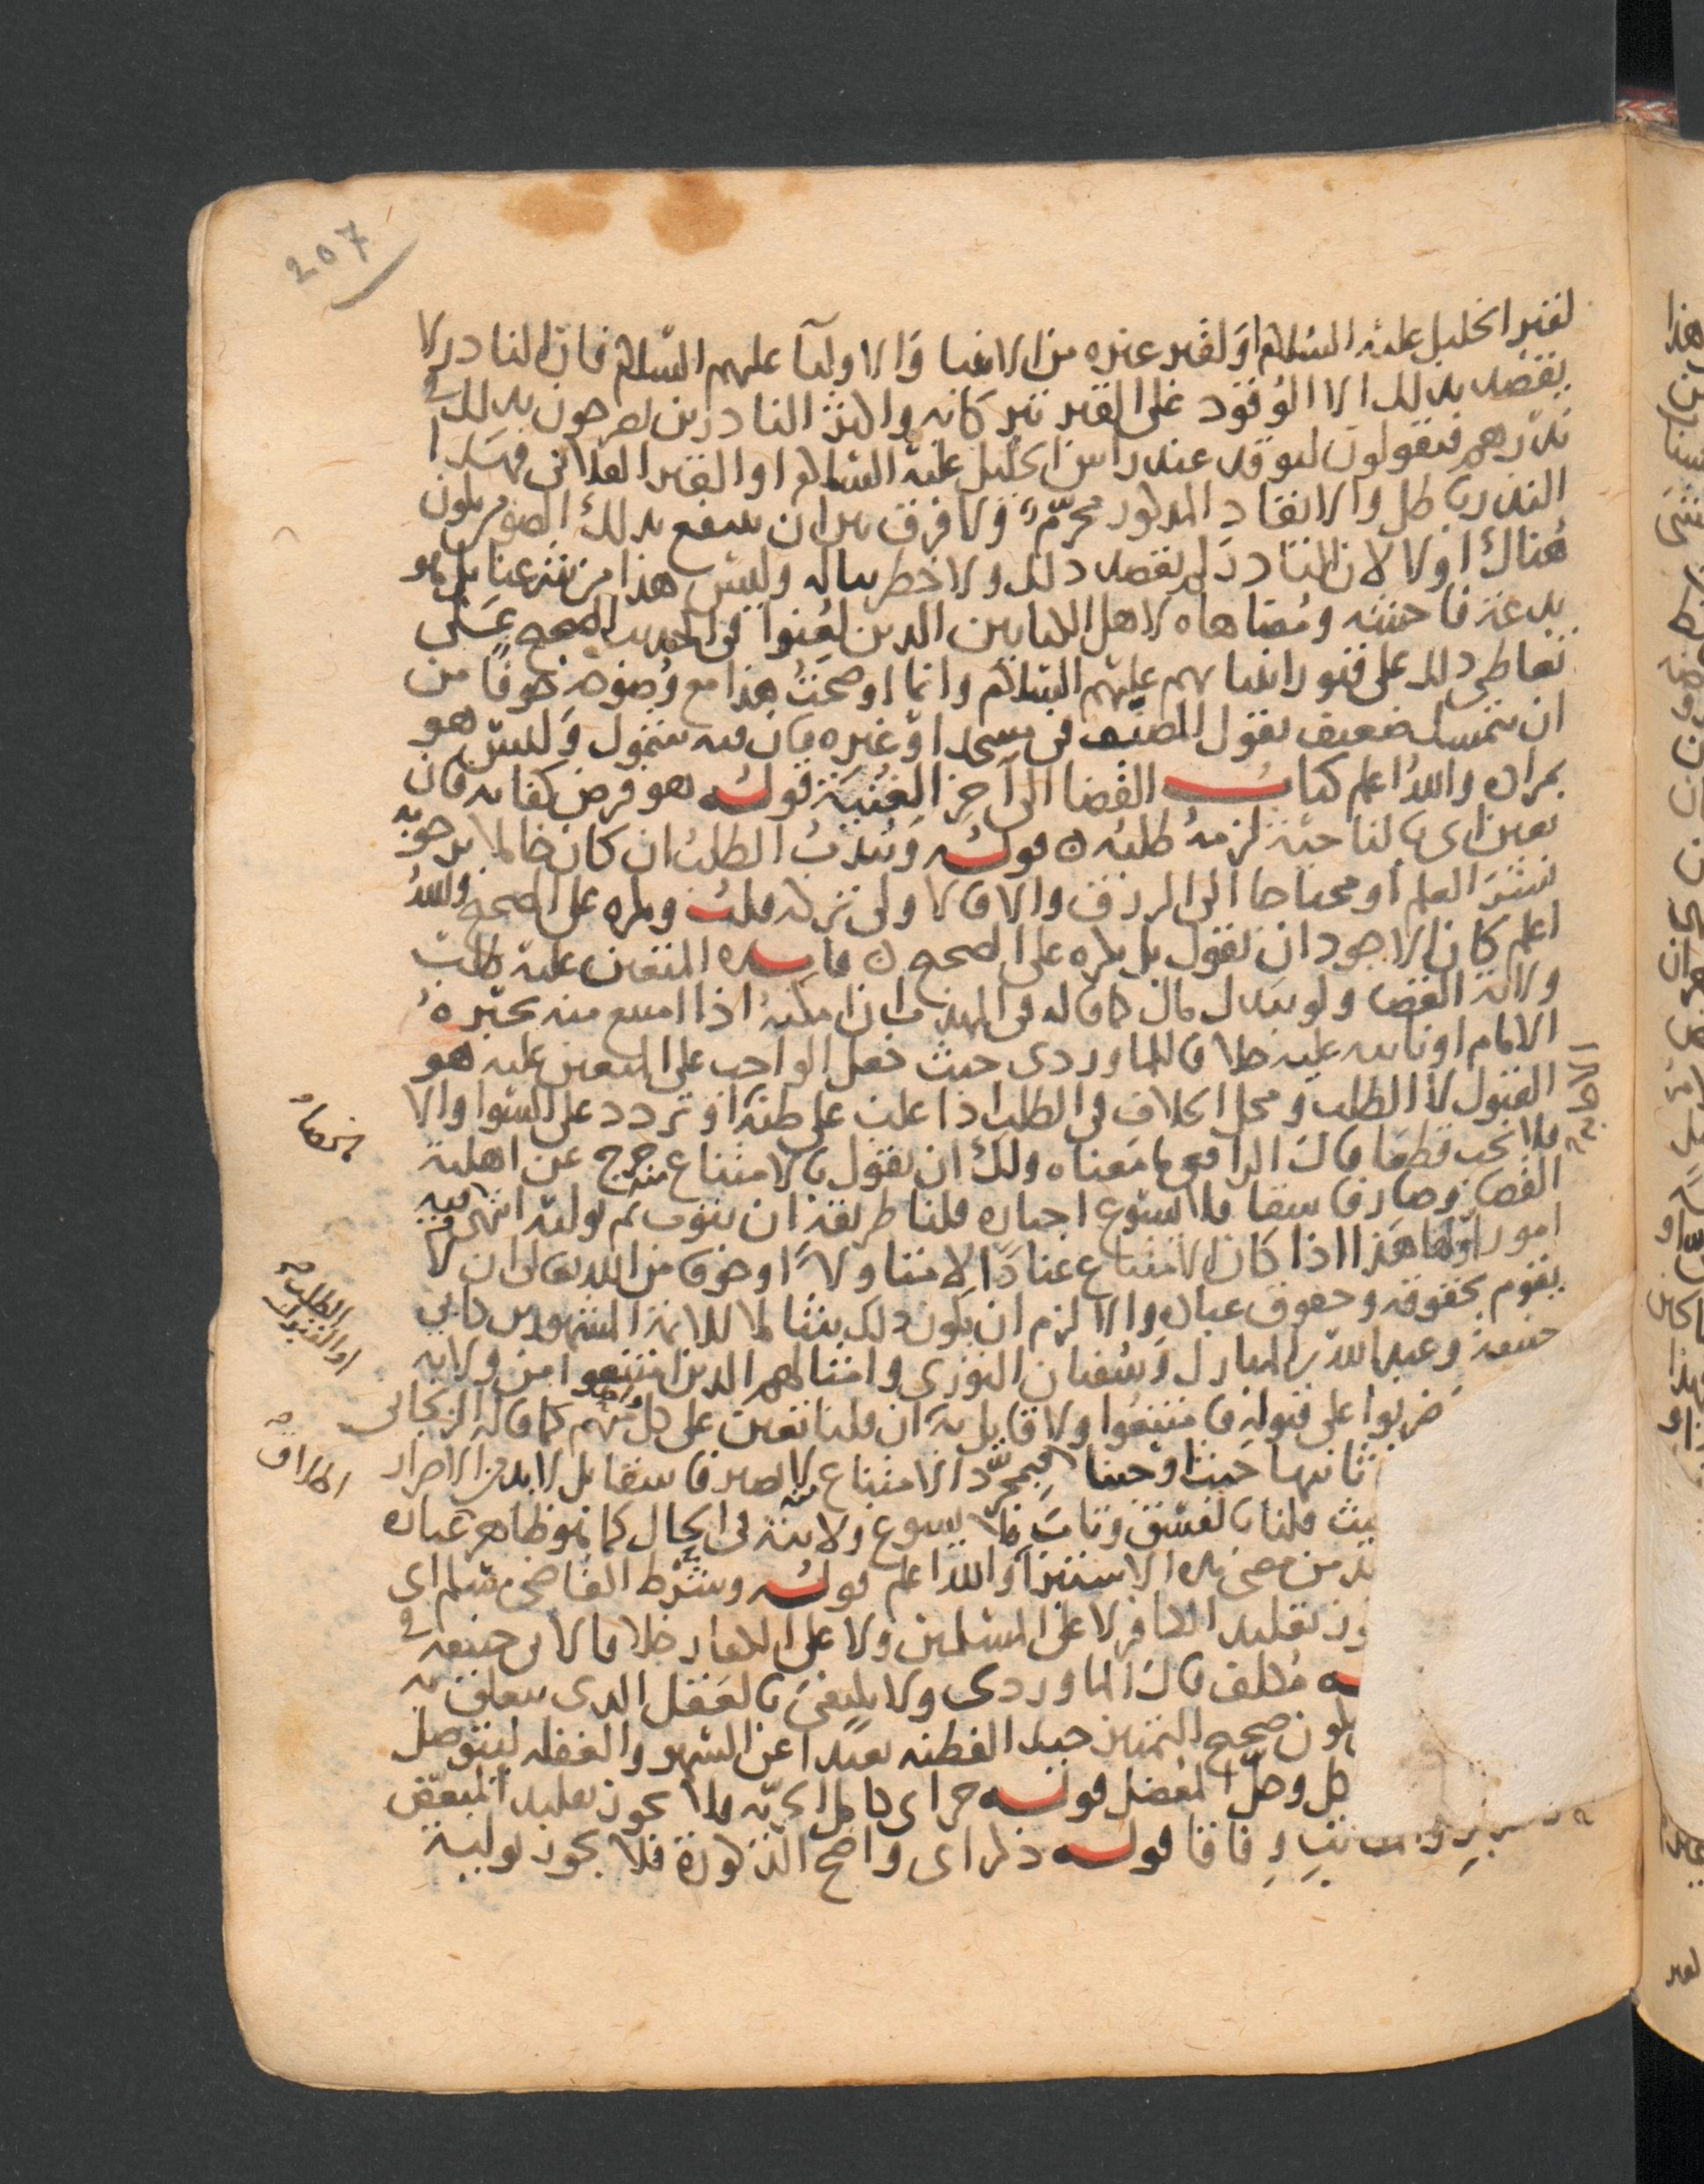 207
لقبر الخليل عليه السلام او لقبر غيره من الانبيا والاوليآ عليهم السلام فان النادر لا
يقصد بذلك الا الوقود على القبر تبركا به واكثر الناذرين يصرحون بذلك في
نذرهم فيقولون ليوقد عند راس الخليل عليه السلام او القبر الفلاني فهذا
النذر باطل والايقاد المذكور محرّم ولا فرق بين ان ينتفع بذلك الضوء من يكون
هناك اولا لان الناذر لم يقصد ذلك ولا خطر بباله وليس هذا من شرعنا بل هو
بدعة فاحشة ومضاهاه لاهل الكتابين الذين لعنوا في الحديث الصحيح على
تعاطي ذلك على قبور انبيائهم عليهم السلام وانما اوضحت هذا مع وضوحه خوفا من
ان يتمسك ضعيف بقول المصنف في مسجد او غيره فان فيه شمول وليس هو
بمراده والله اعلم كتاب القضا الى آخر الغنية قوله هو فرض كفايه فان
تعين اى بالناحية لزمه طلبه قوله ويندب الطلب ان كان خاملا يرجو به
نشر العلم او محتاجا الى الرزق والا فالاولى تركه قلت ويكره على الصحيح والله
اعلم كان الاجود ان يقول بل يكره على الصحيح فايده المتعين عليه طلب
ولاية القضا ولو ببذل مال كما قاله في المهذب ان امكنه اذا امتنع منه يجبره
الامام او نايبه عليه خلافا للماوردى حيث جعل الواجب على المتعين عليه هو
القبول لا الطلب ومحل الخلاف في الطلب اذا غلب على ظنه او تردد على السوا والا
فلا يجب قطعا قال الرافعي ما معناه ولك ان تقول بالامتناع منه خرج عن اهلية
القضا وصار فاسقا فلا يسوغ اجباره قلنا طريقه ان يتوب ثم يوليه انتهى وفيه
امور اولها هذا اذا كان الامتناع عنادا لا متاولا او خوفا من الله تعالى ان لا
يقوم بحقوقه وحقوق عباده والا لزم ان يكون ذلك مثالا للايمة المشهورين كابي
حنيفة وعبد الله بن المبارك وسفيان الثوري وامثالهم الذين امتنعوا من ولايه
ضربوا على قبوله فامتنعوا ولا قابل به ان قلنا تعين على كل واحد منهم كما قاله الزنجاني
ثانيها حيث اوجبنا فبمجرّد الامتناع منه لا يصير فاسقا بل لا بد من الاصرار
يث قلنا بالفسق وتاب فلا يسوغ ولايته في الحال كما هو ظاهر عباره
بد من مضى مده الاستبرآ والله اعلم قوله وشرط القاضى مسلم اى
وز تقليد الكافر لا على المسلمين ولا على الكفار خلافا لابى حنيفه في
ه مكلف قال الماوردى ولا يكفي بالعقل الذى يتعلق به
يكون صحيح التميز جيد الفطنه بعيدا عن السهو والغفله ليتوصل
كل وحلّ المعضل قوله حر اى كامل الحريّه فلا يجوز تقليد المبعض
وفاقا قوله ذكر اى واضح الذكورة فلا يجوز توليه
القضاء
او الطلب
والقبول
اطلاق